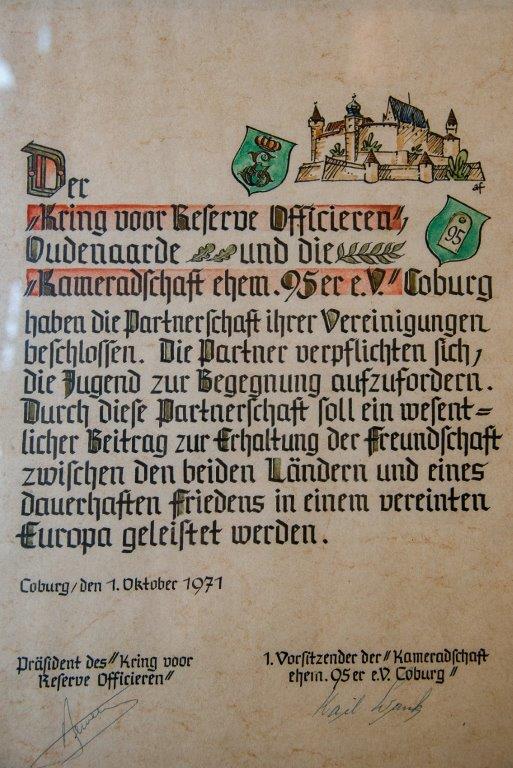 Der
„Kring voor Reserve Officieren",
Oudenaarde und die
„Kameradschaft ehem. 95er e.V." Coburg
haben die Partnerschaft ihrer Vereinigungen
beschlossen. Die Partner verpflichten sich,
die Jugend zur Begegnung aufzufordern.
Durch diese Partnerschaft soll ein wesent=
licher Beitrag zur Erhaltung der Freundschaft
zwischen den beiden Ländern und eines
dauerhaften Friedens in einem vereinten
Europa geleistet werden.
95
af
Coburg, den 1. Oktober 1971
Präsident des "Kring voor
Reserve Officieren"
1. Vorsitzender der "Kameradschaft
ehem. 95er e.V. Coburg"